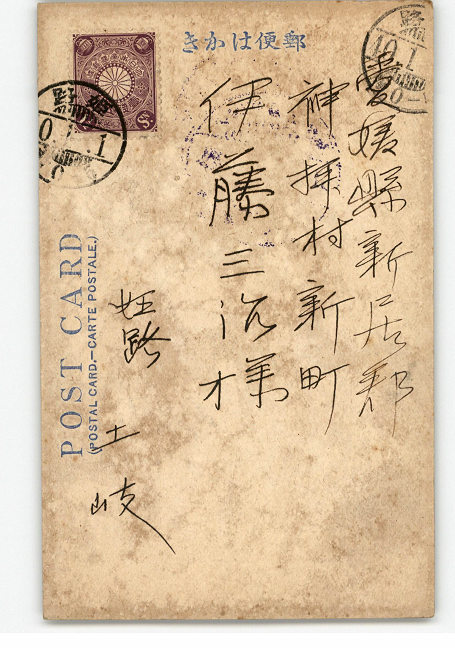 郵便はかき
愛媛縣新居郡
神拝村新町
伊藤三治様
姫路
土岐
POST CARD
(POSTAL CARD.–CARTE POSTALE.)